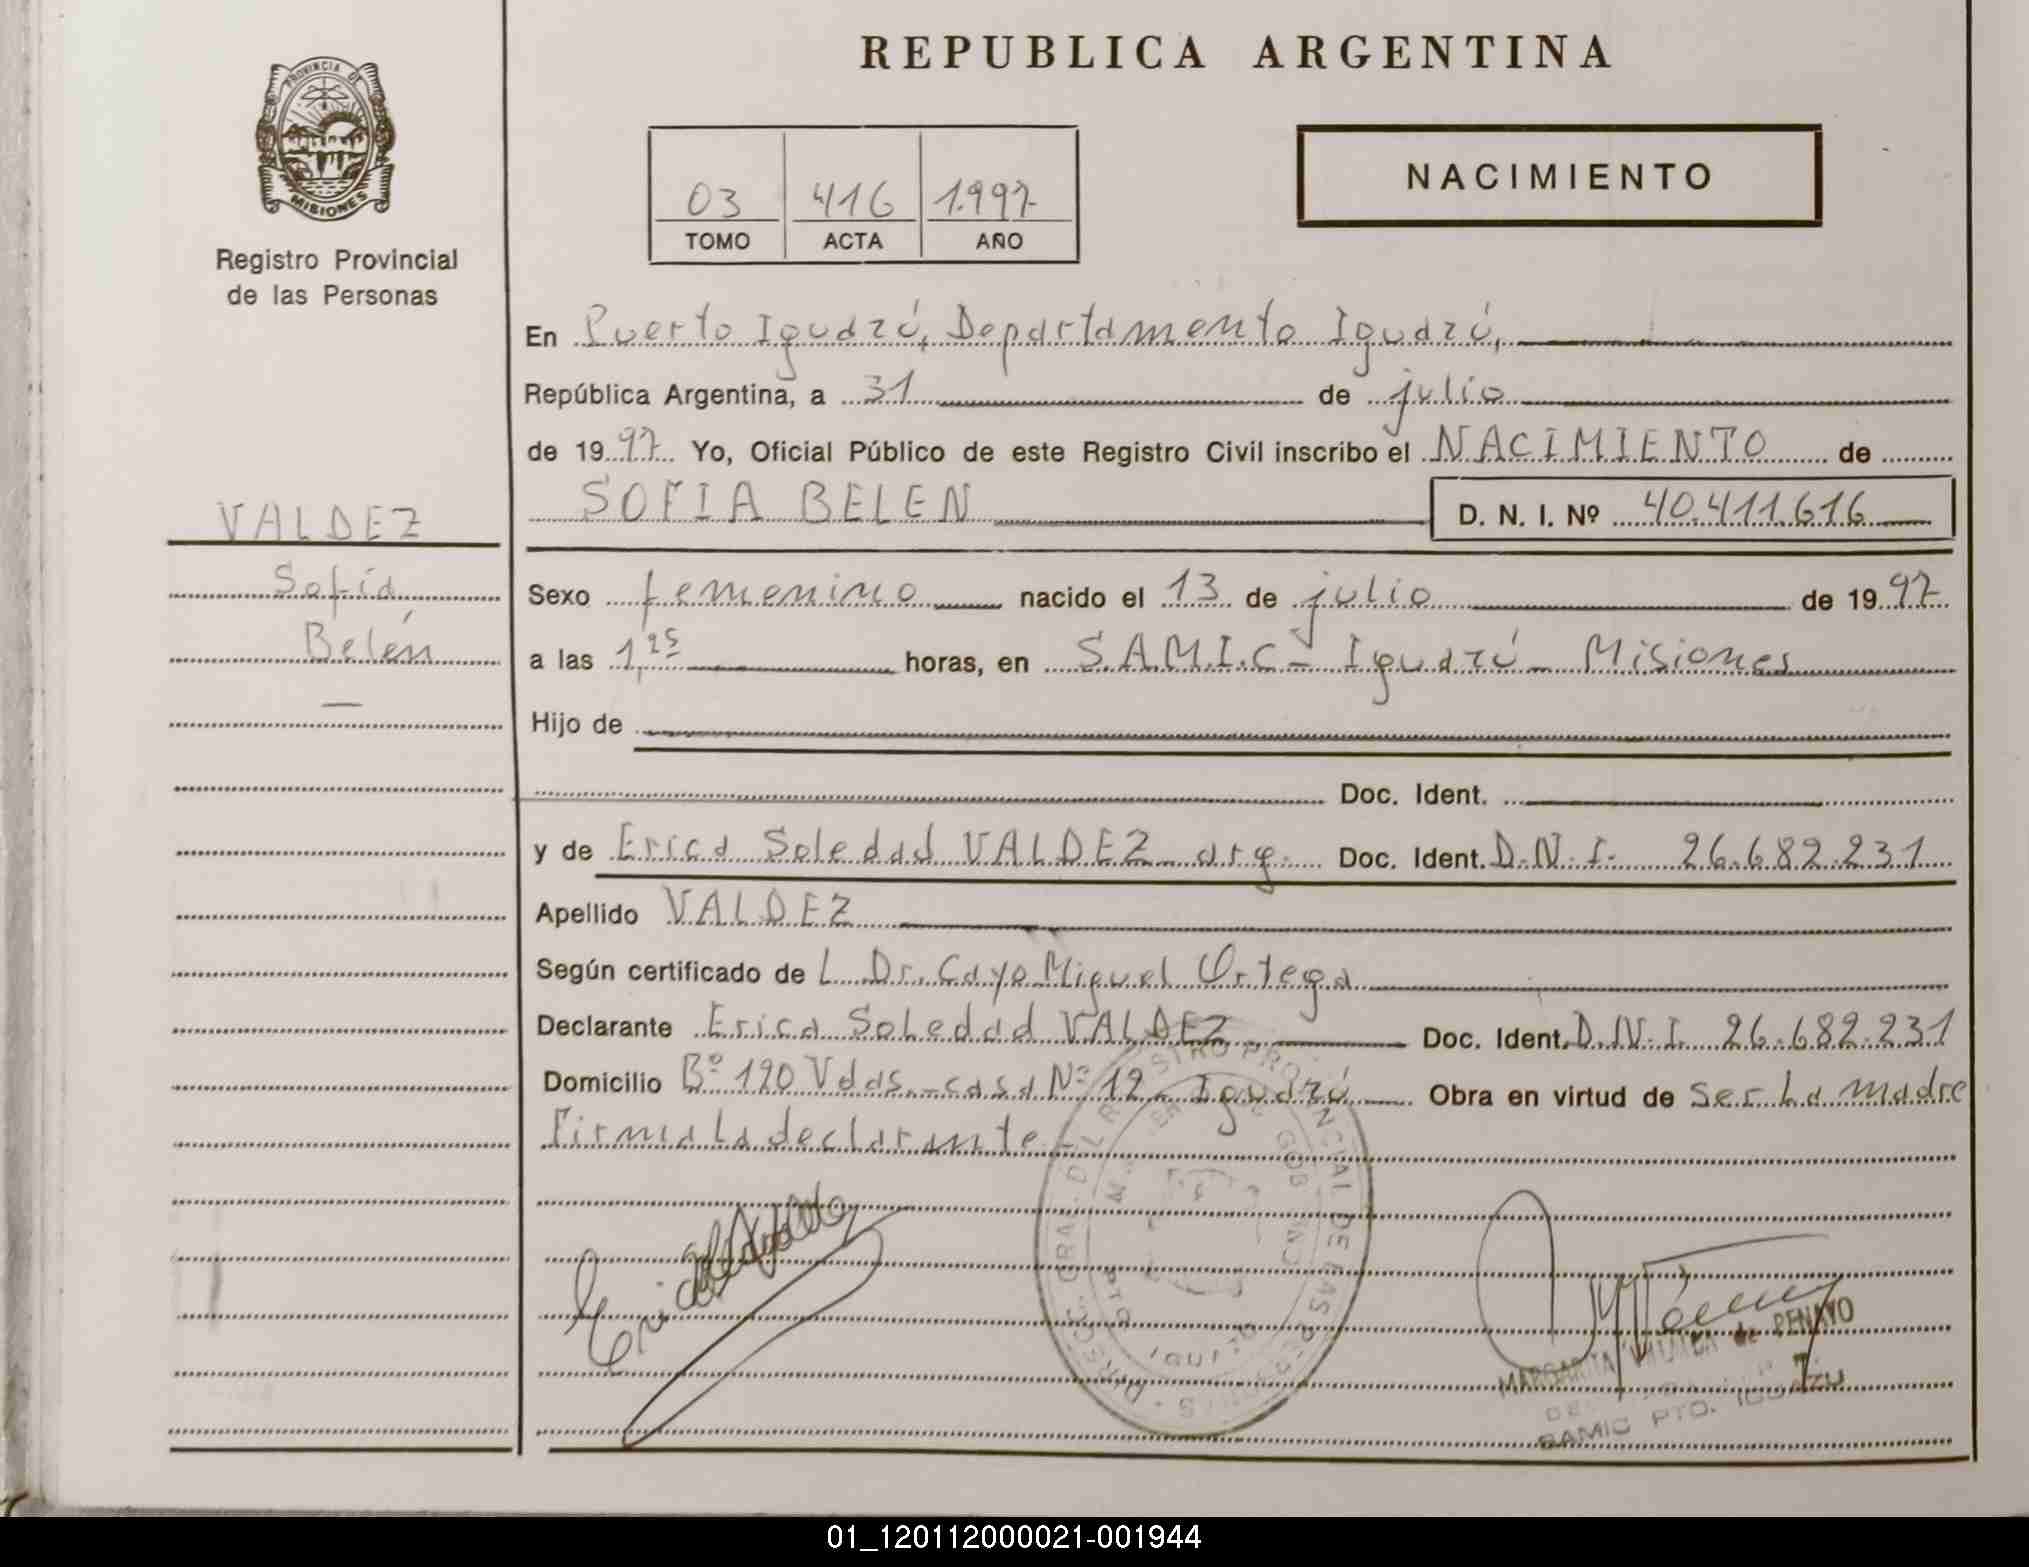 REPUBLICA ARGENTINA
PROVINCIA DE
MISIONES
Registro Provincial
de las Personas
03 416 1.997
TOMO ACTA AÑO
NACIMIENTO
En Puerto Iguazú, Departamento Iguazú,
República Argentina, a 31 de julio
de 1997 Yo, Oficial Público de este Registro Civil inscribo el NACIMIENTO de
SOFIA BELEN D. N. I. Nº 40.411.616
VALDEZ
Sofía
Belén
Sexo femenino nacido el 13 de julio de 1997
a las 1,25 horas, en S.A.M.I.C - Iguazú - Misiones
Hijo de
Doc. Ident.
y de Erica Soledad VALDEZ arg. Doc. Ident. D.N.I. 26.682.231
Apellido VALDEZ
Según certificado de L Dr. Cayo Miguel Ortega
Declarante Erica Soledad VALDEZ Doc. Ident. D.N.I. 26.682.231
Domicilio Bº 120 Vdas.-casa Nº 12 - Iguazú Obra en virtud de ser La madre
Firma La declarante
MARGARITA de PENAYO
SAMIC PTO. IGUAZU
01_120112000021-001944